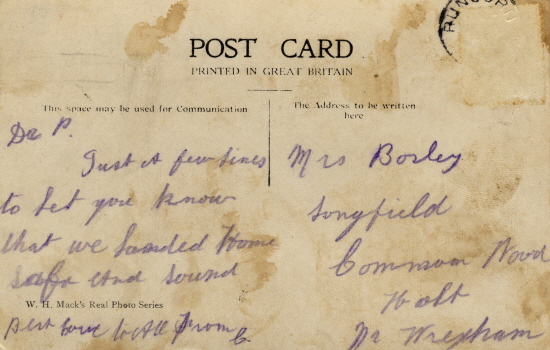 RUNCOR
POST CARD
PRINTED IN GREAT BRITAIN
This space may be used for Communication
The Address to be written
here
Dr P.
Just A few lines
to Let you know
that we Landed Home
Safe And Sound
W. H. Mack's Real Photo Series
Best Love to All From
Mrs Bosley
Songfield
Common Wood
Holt
Nr Wrexham